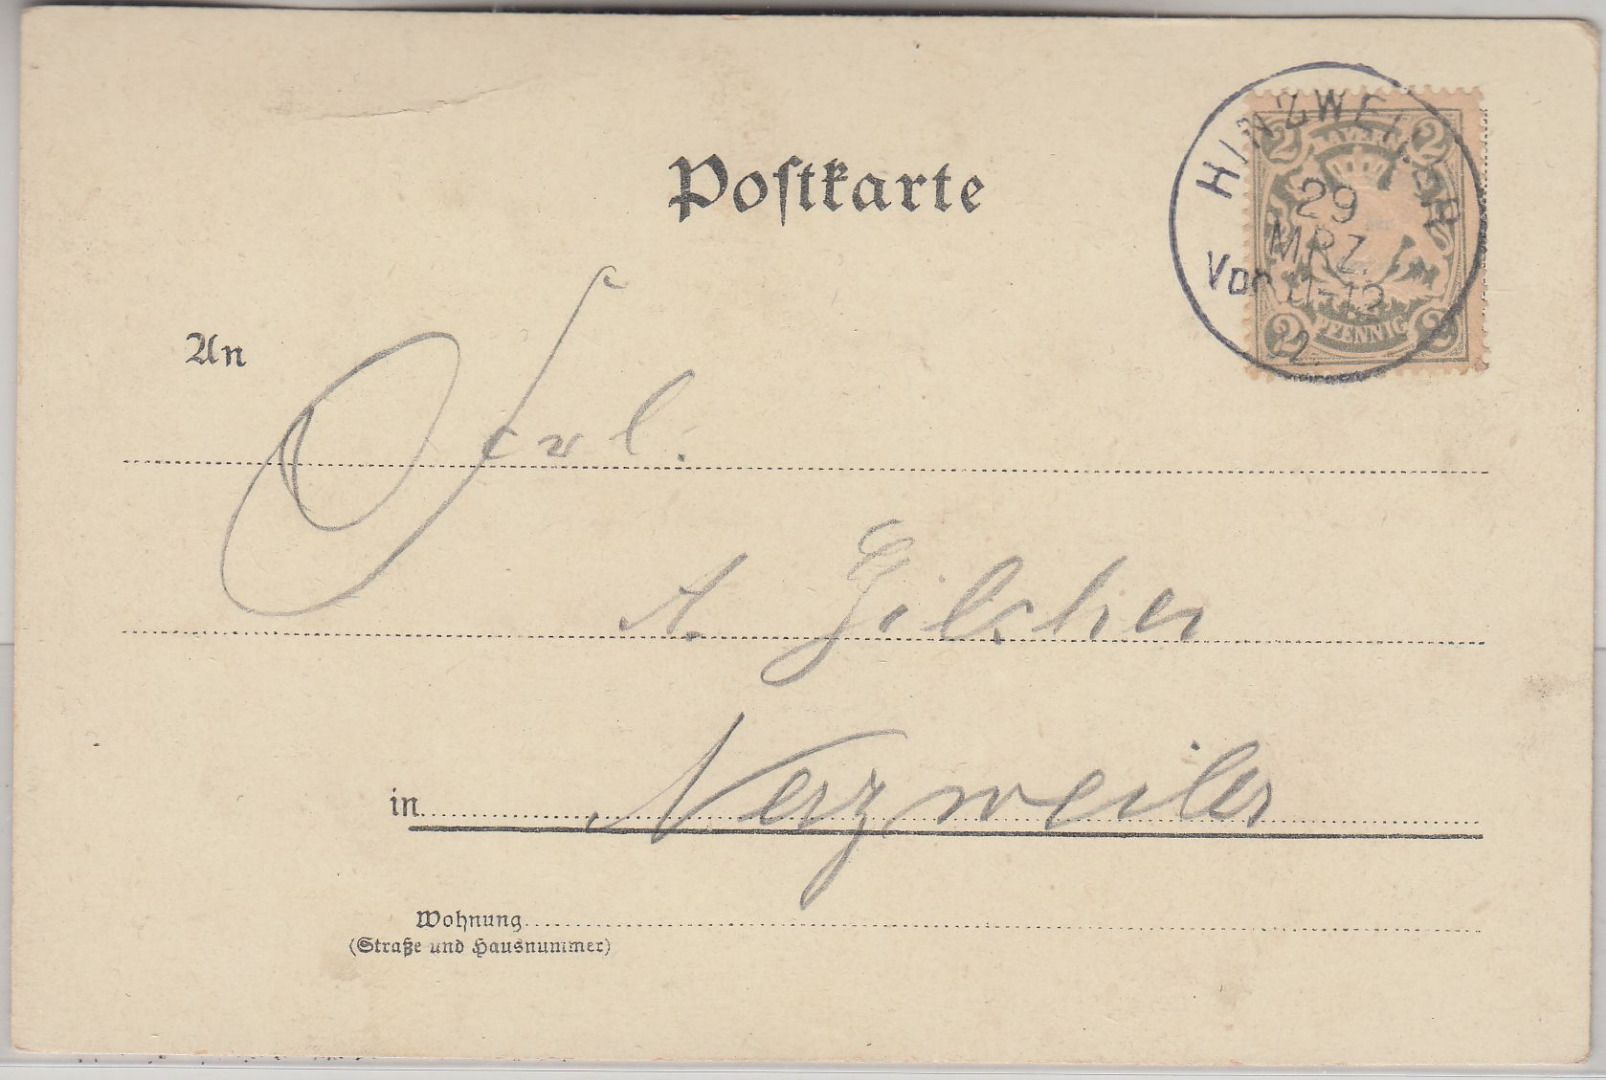 Postkarte
HINZWEILER
29
MRZ.
Vor. 11-12
2 2
BAYERN
PFENNIG
2 2
An
Frl.
A. Gilcher
in Nerzweiler
Wohnung
(Straße und Hausnummer)